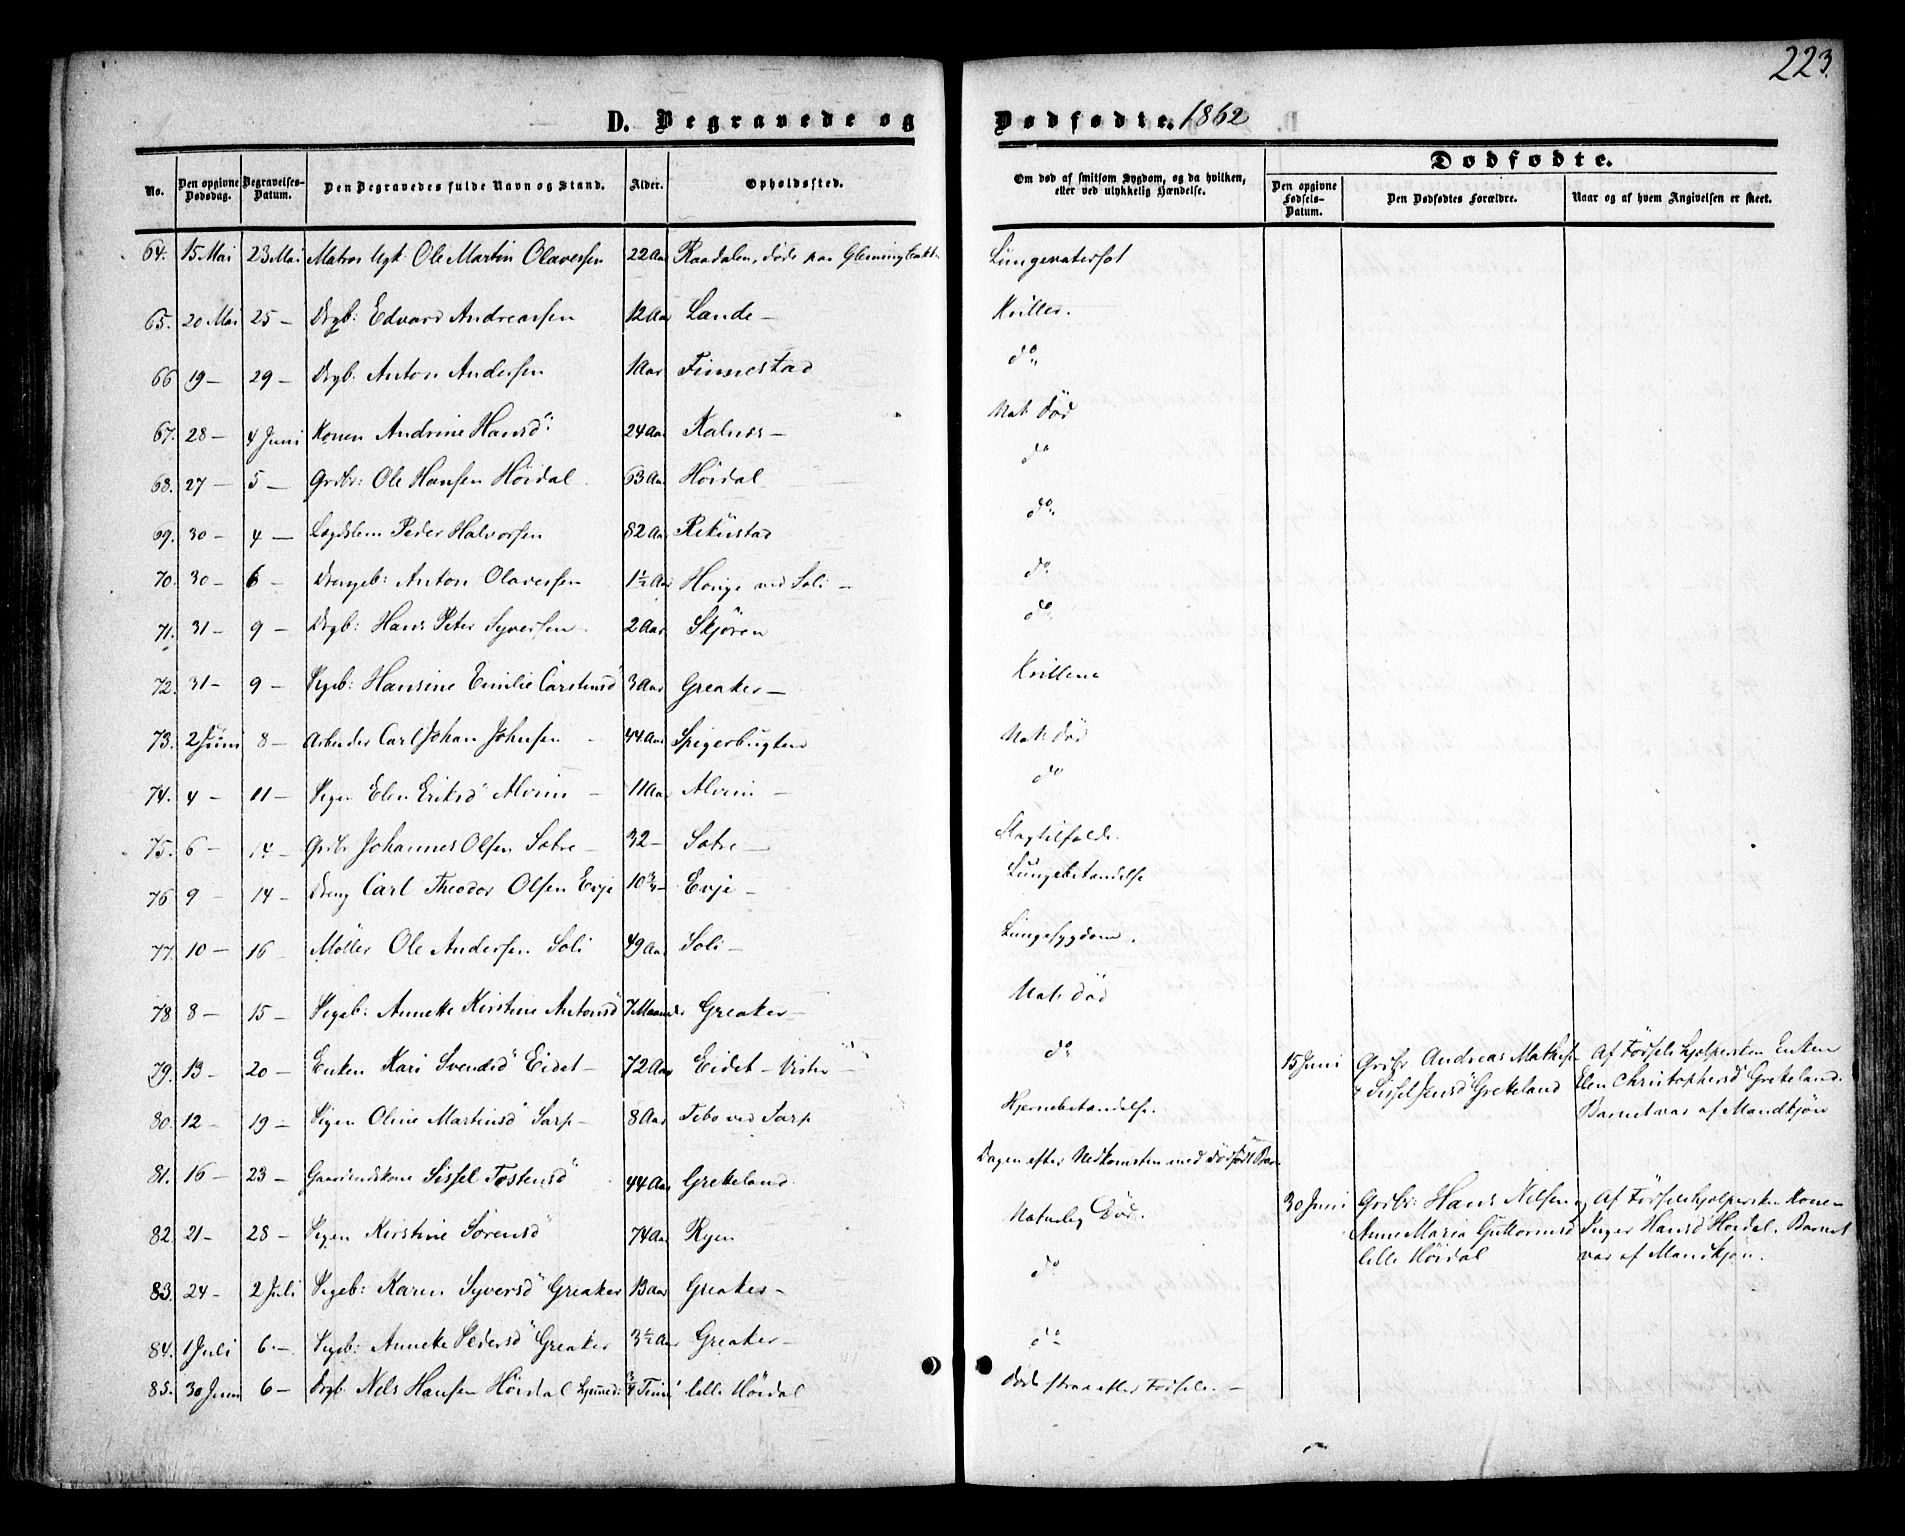 223.
D. Begravede og Dødfødte. 1862
Dødfødte.
No. Den opgivne Dødsdag. Begravelses-Datum. Den Begravedes fulde Navn og Stand. Alder. Opholdssted. Om død af smitsom Sygdom, og da hvilken, eller ved ulykkelig Hændelse. Den opgivne Fødsels-Datum. Den Dødfødtes Forældre. Naar og af hvem Angivelsen er skeet.
64. 15 Mai 23 Mai Matros Ugk. Ole Martin Olavessen 22 Aar Raadalen, døde paa Lungecatersot
65. 20 Mai 25 — Drgb: Edvard Andreassen 12 Aar Lande — Kriller.
66 19 — 29 — Drgb. Anton Andersen 1 Aar Finnestad do
67. 28 — 4 Juni Konen Andrine Hansd: 24 Aar Kalnes — Nat. Død
68. 27 — 5 — Grdbr: Ole Hansen Höidal 63 Aar Höidal do
69. 30 — 4 — Lægdslem Peder Halvorsen 82 Aar Rekustad do
70. 30 — 6 — Drengeb: Anton Olavessen 1½ Aar Hauge ved Soli — do
71. 31 — 9 — Drgb: Hans Peter Syversen 2 Aar Skjören do
72. 31 — 9 — Pigeb: Hansine Emilie Carstensd 3 Aar Greaker — Krillene
73. 2 Juni 8 — Arbeider Carl Johan Johnsen 44 Aar Spigerbugten Nat. Død
74. 4 — 11 — Pigen Elen Eriksd Alvim — 11 Aar Alvim — do
75. 6 — 14 — Grdbr Johannes Olsen Sotre — 32 — Sotre — Slagtilfælde.
76 9 — 14 — Dreng Carl Theodor Olsen Evje 10 ¾ — Evje — Lungebetændelse
77. 10 — 16 Møller Ole Andersen Soli 49 Aar Soli — Lungesygdom.
78 8 — 15 — Pigeb: Annette Kirstine Antonsd 7 Maaneder Greaker — Nat. Død
79. 13 — 20 — Enken Kari Svendsd Eidet — 72 Aar Eidet — Vister — do
15 Juni Grdbr Andreas Mathisen Af Fødselshjelpersken Enken
& Sissel Jensd Grekeland Elen Christophersd Grekeland.
Barnet var af Mandkjön
80. 12 — 19 — Pigen Oline Martinsd Sarp — 8 Aar Tebo ved Sarp Hjernebetændelse.
81. 16 — 23 — Gaardmandskone Sissel Tostensd 44 Aar Grekeland. Dagen efter Nedkomsten med dödfödt Barn
30 Juni Grdbr: Hans Nilsen og Af Fødselshjelpersken Konen
Anne Maria Guttormsd Inger Hansd Höidal. Barnet
lille Höidal var af Mandkjön.
82. 21 — 28 — Pigen Kirstine Sörensd 74 Aar Ryen Naturlig Död.
83. 24 — 2 Juli Pigeb: Karen Syversd Greaker 13 Aar Greaker — do
84. 1 Juli 6. — Pigeb: Annette Pedersd Greaker 3½ Aar Greaker — do
85. 30 Juni 6 — Drgb. Nels Hansen Höidal hjemmed: ¾ Time lille Höidal Döde strax efter Födsel. —